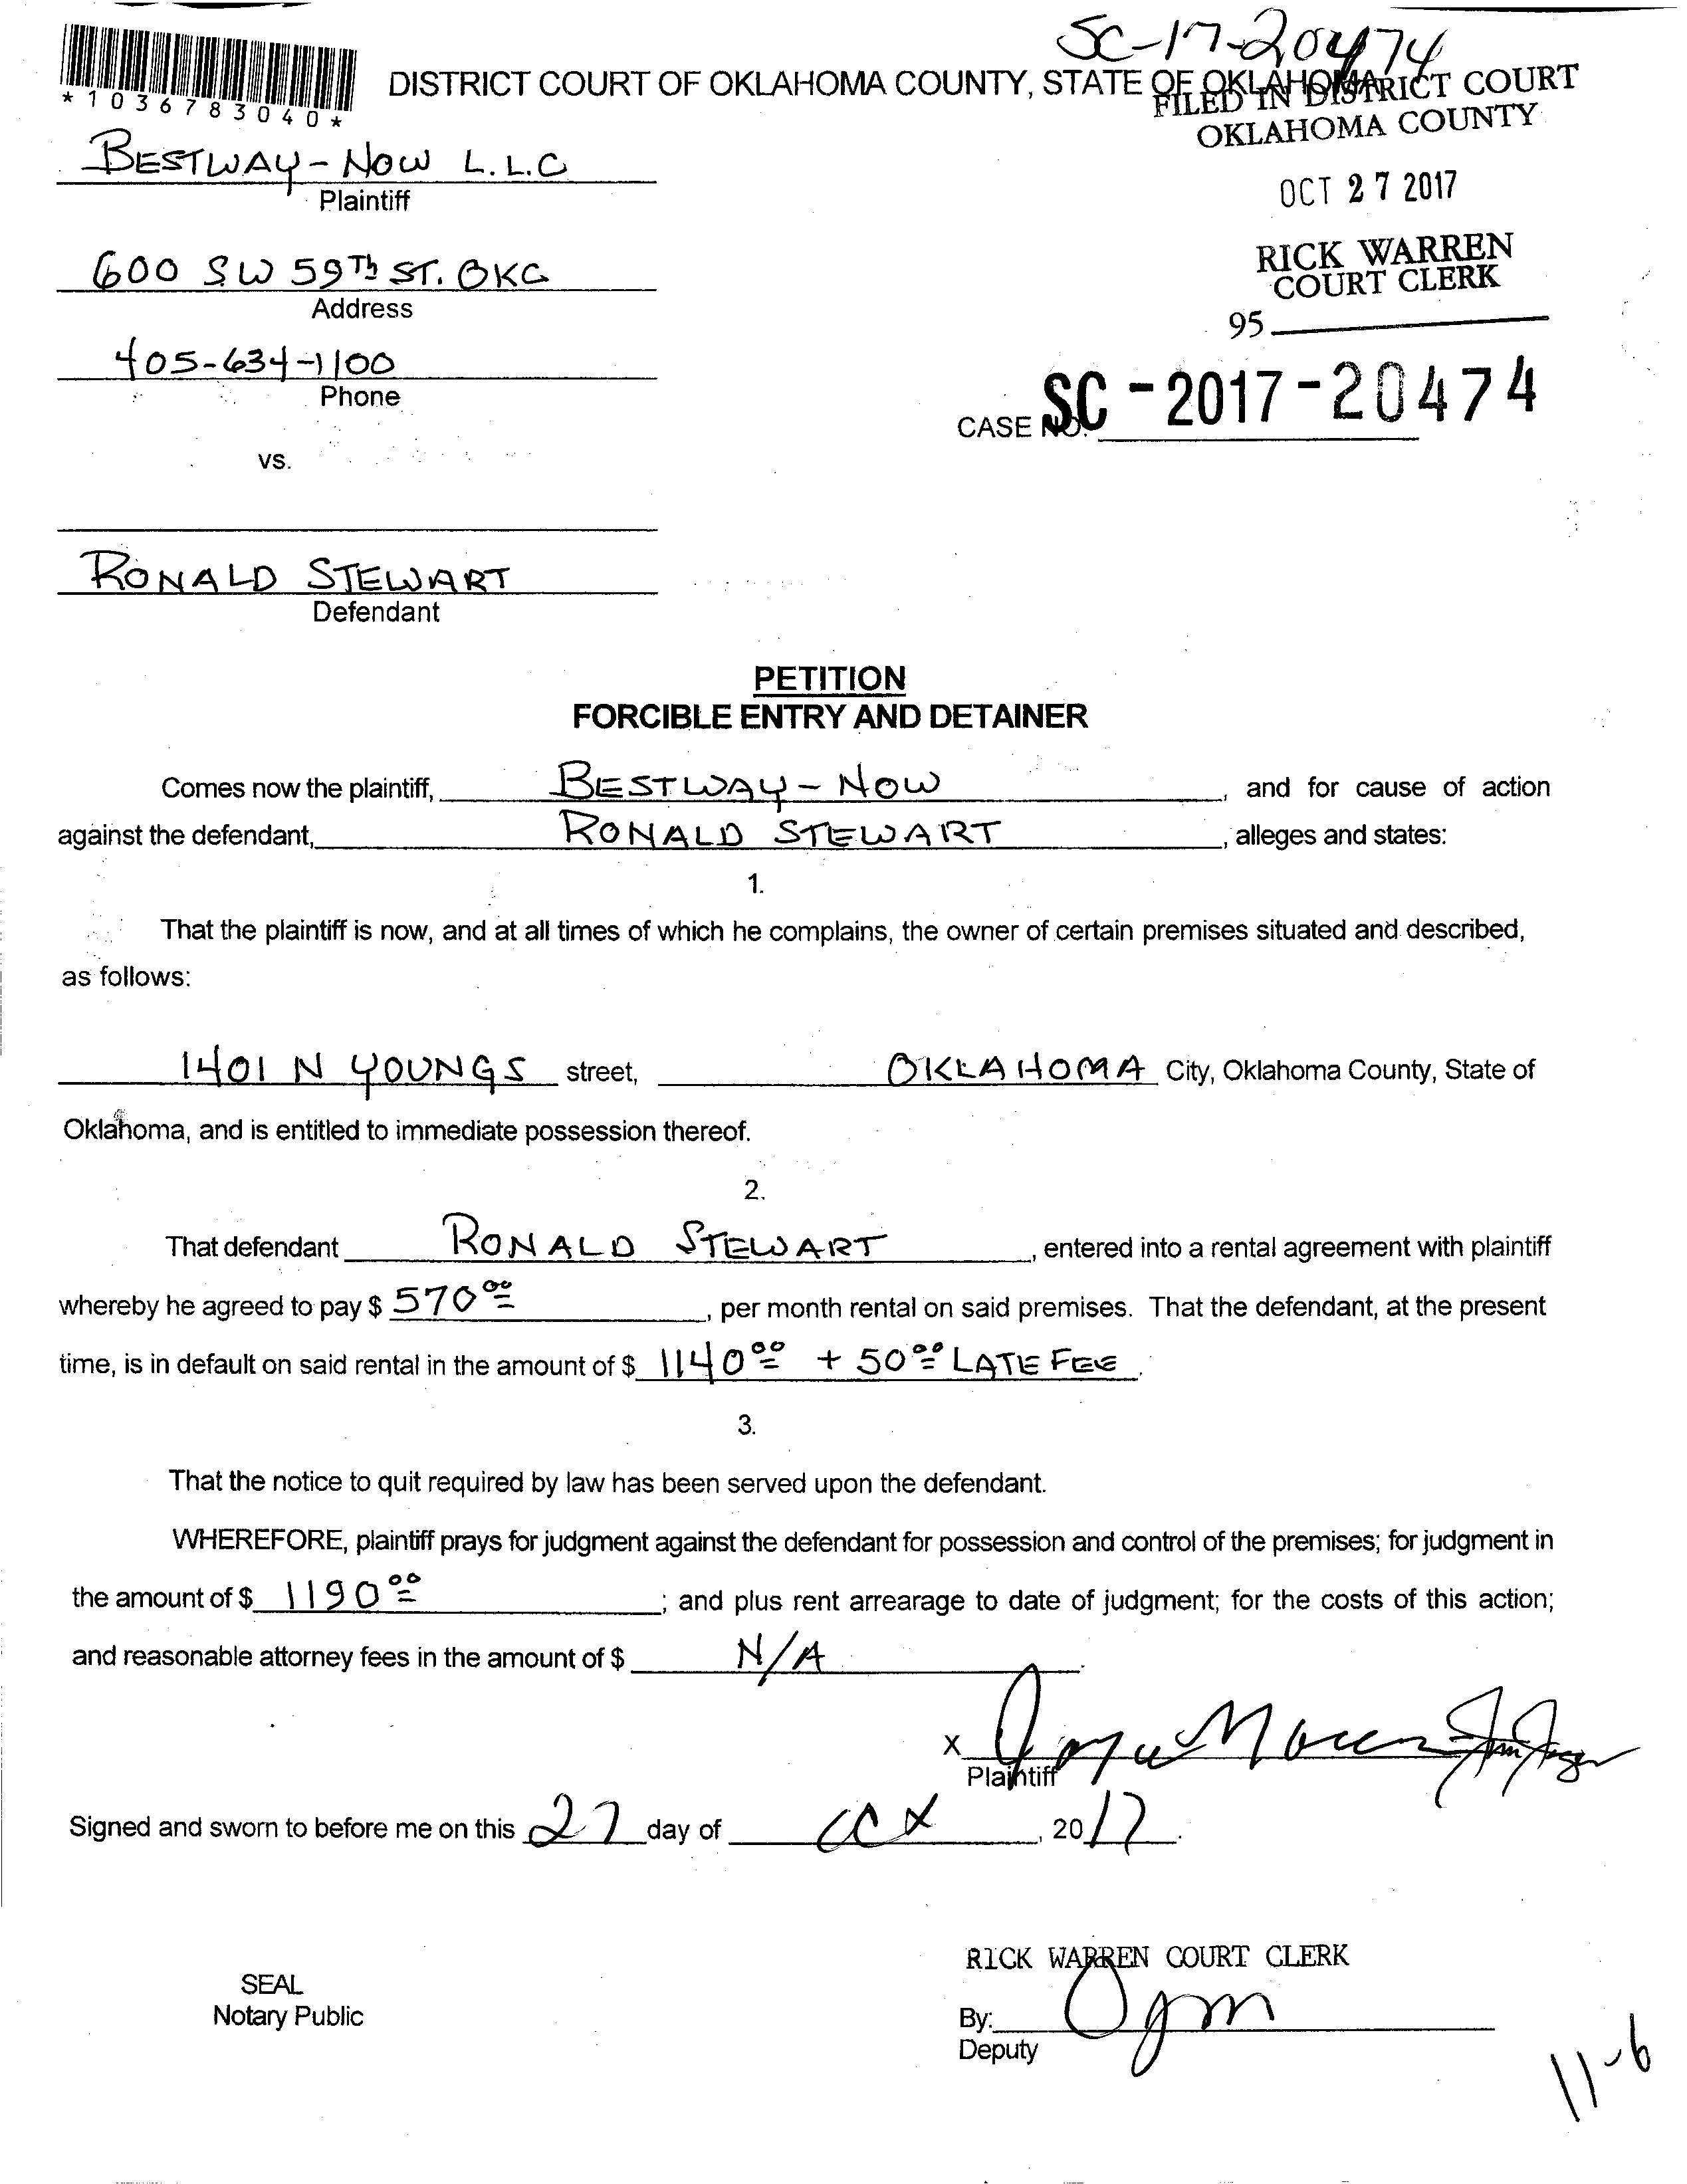 SC-17-20474
*1036783040*
DISTRICT COURT OF OKLAHOMA COUNTY, STATE OF OKLAHOMA
FILED IN DISTRICT COURT
OKLAHOMA COUNTY
BESTWAY-NOW L.L.C
Plaintiff
OCT 27 2017
600 SW 59Th ST. OKC
Address
RICK WARREN
COURT CLERK
95
405-634-1100
Phone
CASE NO. SC-2017-20474
vs.
RONALD STEWART
Defendant
PETITION
FORCIBLE ENTRY AND DETAINER
Comes now the plaintiff, BESTWAY-NOW, and for cause of action
against the defendant, RONALD STEWART, alleges and states:
1.
That the plaintiff is now, and at all times of which he complains, the owner of certain premises situated and described,
as follows:
1401 N YOUNGS street, OKLAHOMA City, Oklahoma County, State of
Oklahoma, and is entitled to immediate possession thereof.
2.
That defendant RONALD STEWART, entered into a rental agreement with plaintiff
whereby he agreed to pay $ 570 00, per month rental on said premises. That the defendant, at the present
time, is in default on said rental in the amount of $ 1140 00 + 50 00 LATE FEE.
3.
That the notice to quit required by law has been served upon the defendant.
WHEREFORE, plaintiff prays for judgment against the defendant for possession and control of the premises; for judgment in
the amount of $ 1190 00; and plus rent arrearage to date of judgment; for the costs of this action;
and reasonable attorney fees in the amount of $ N/A.
X
Plaintiff
Signed and sworn to before me on this 27 day of, 2017.
RICK WARREN COURT CLERK
SEAL
Notary Public
By:
Deputy
11-6